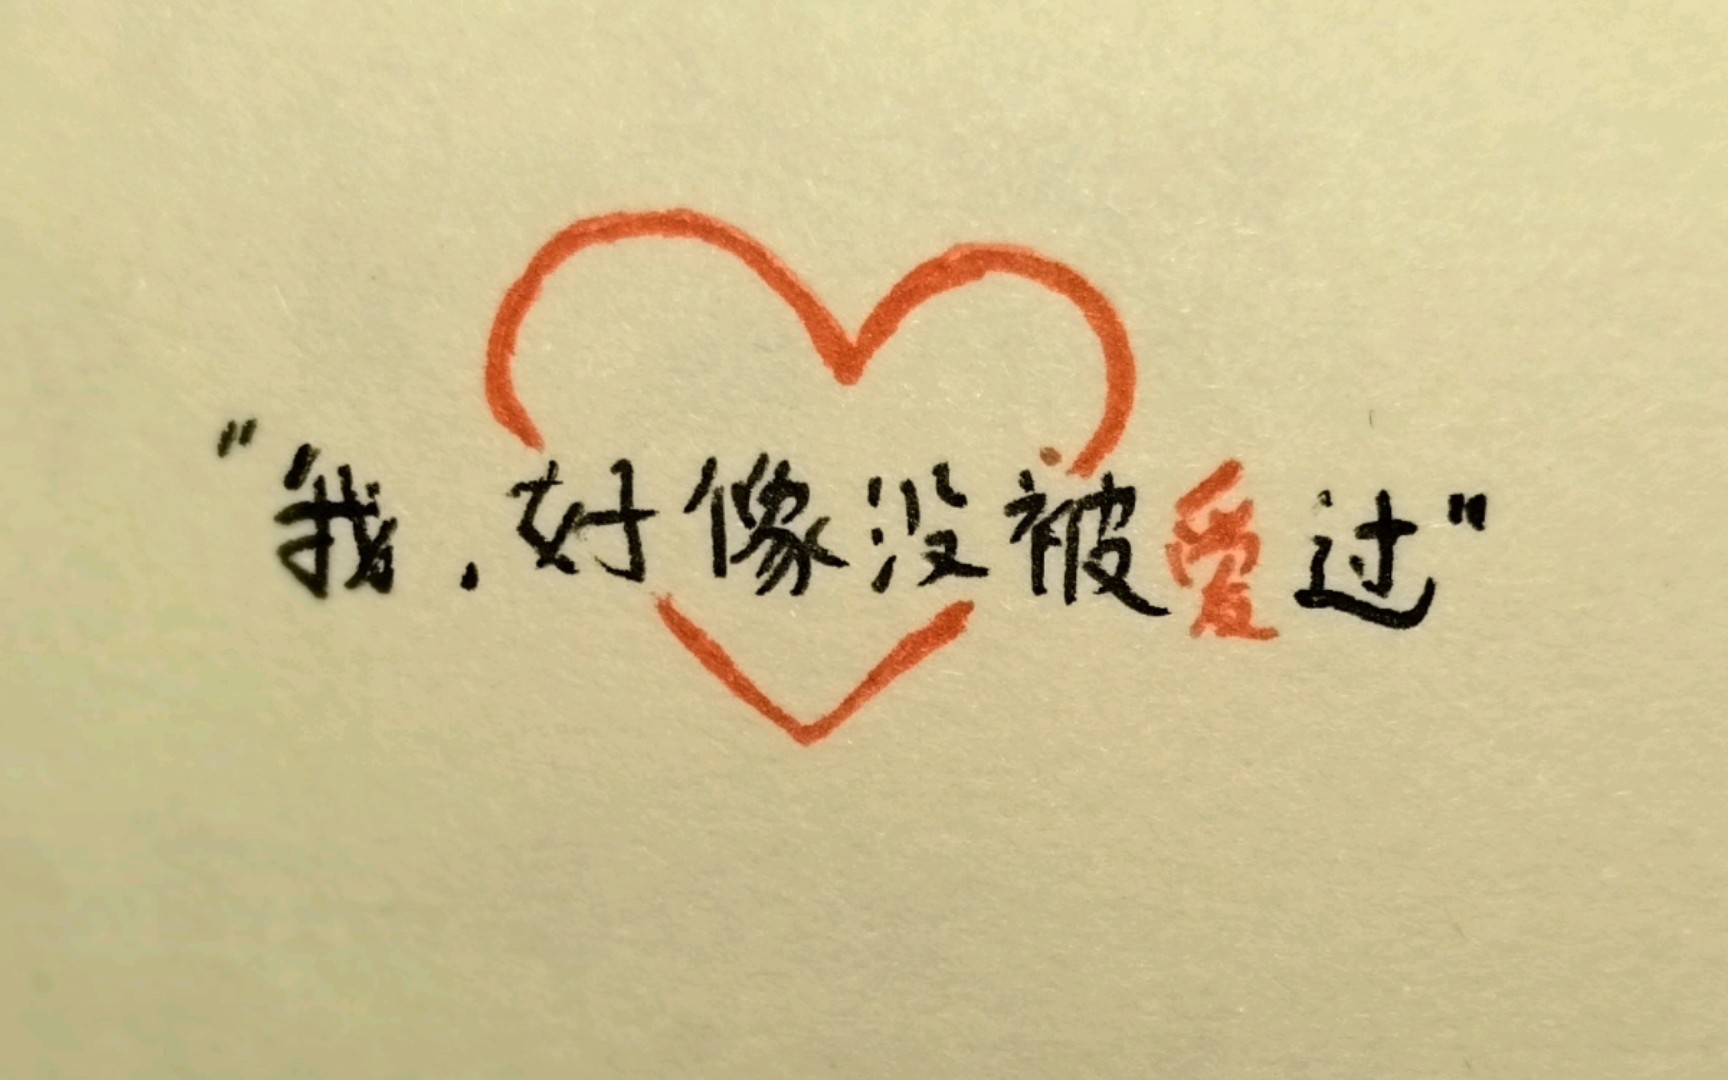 "我.好像没被愛过"